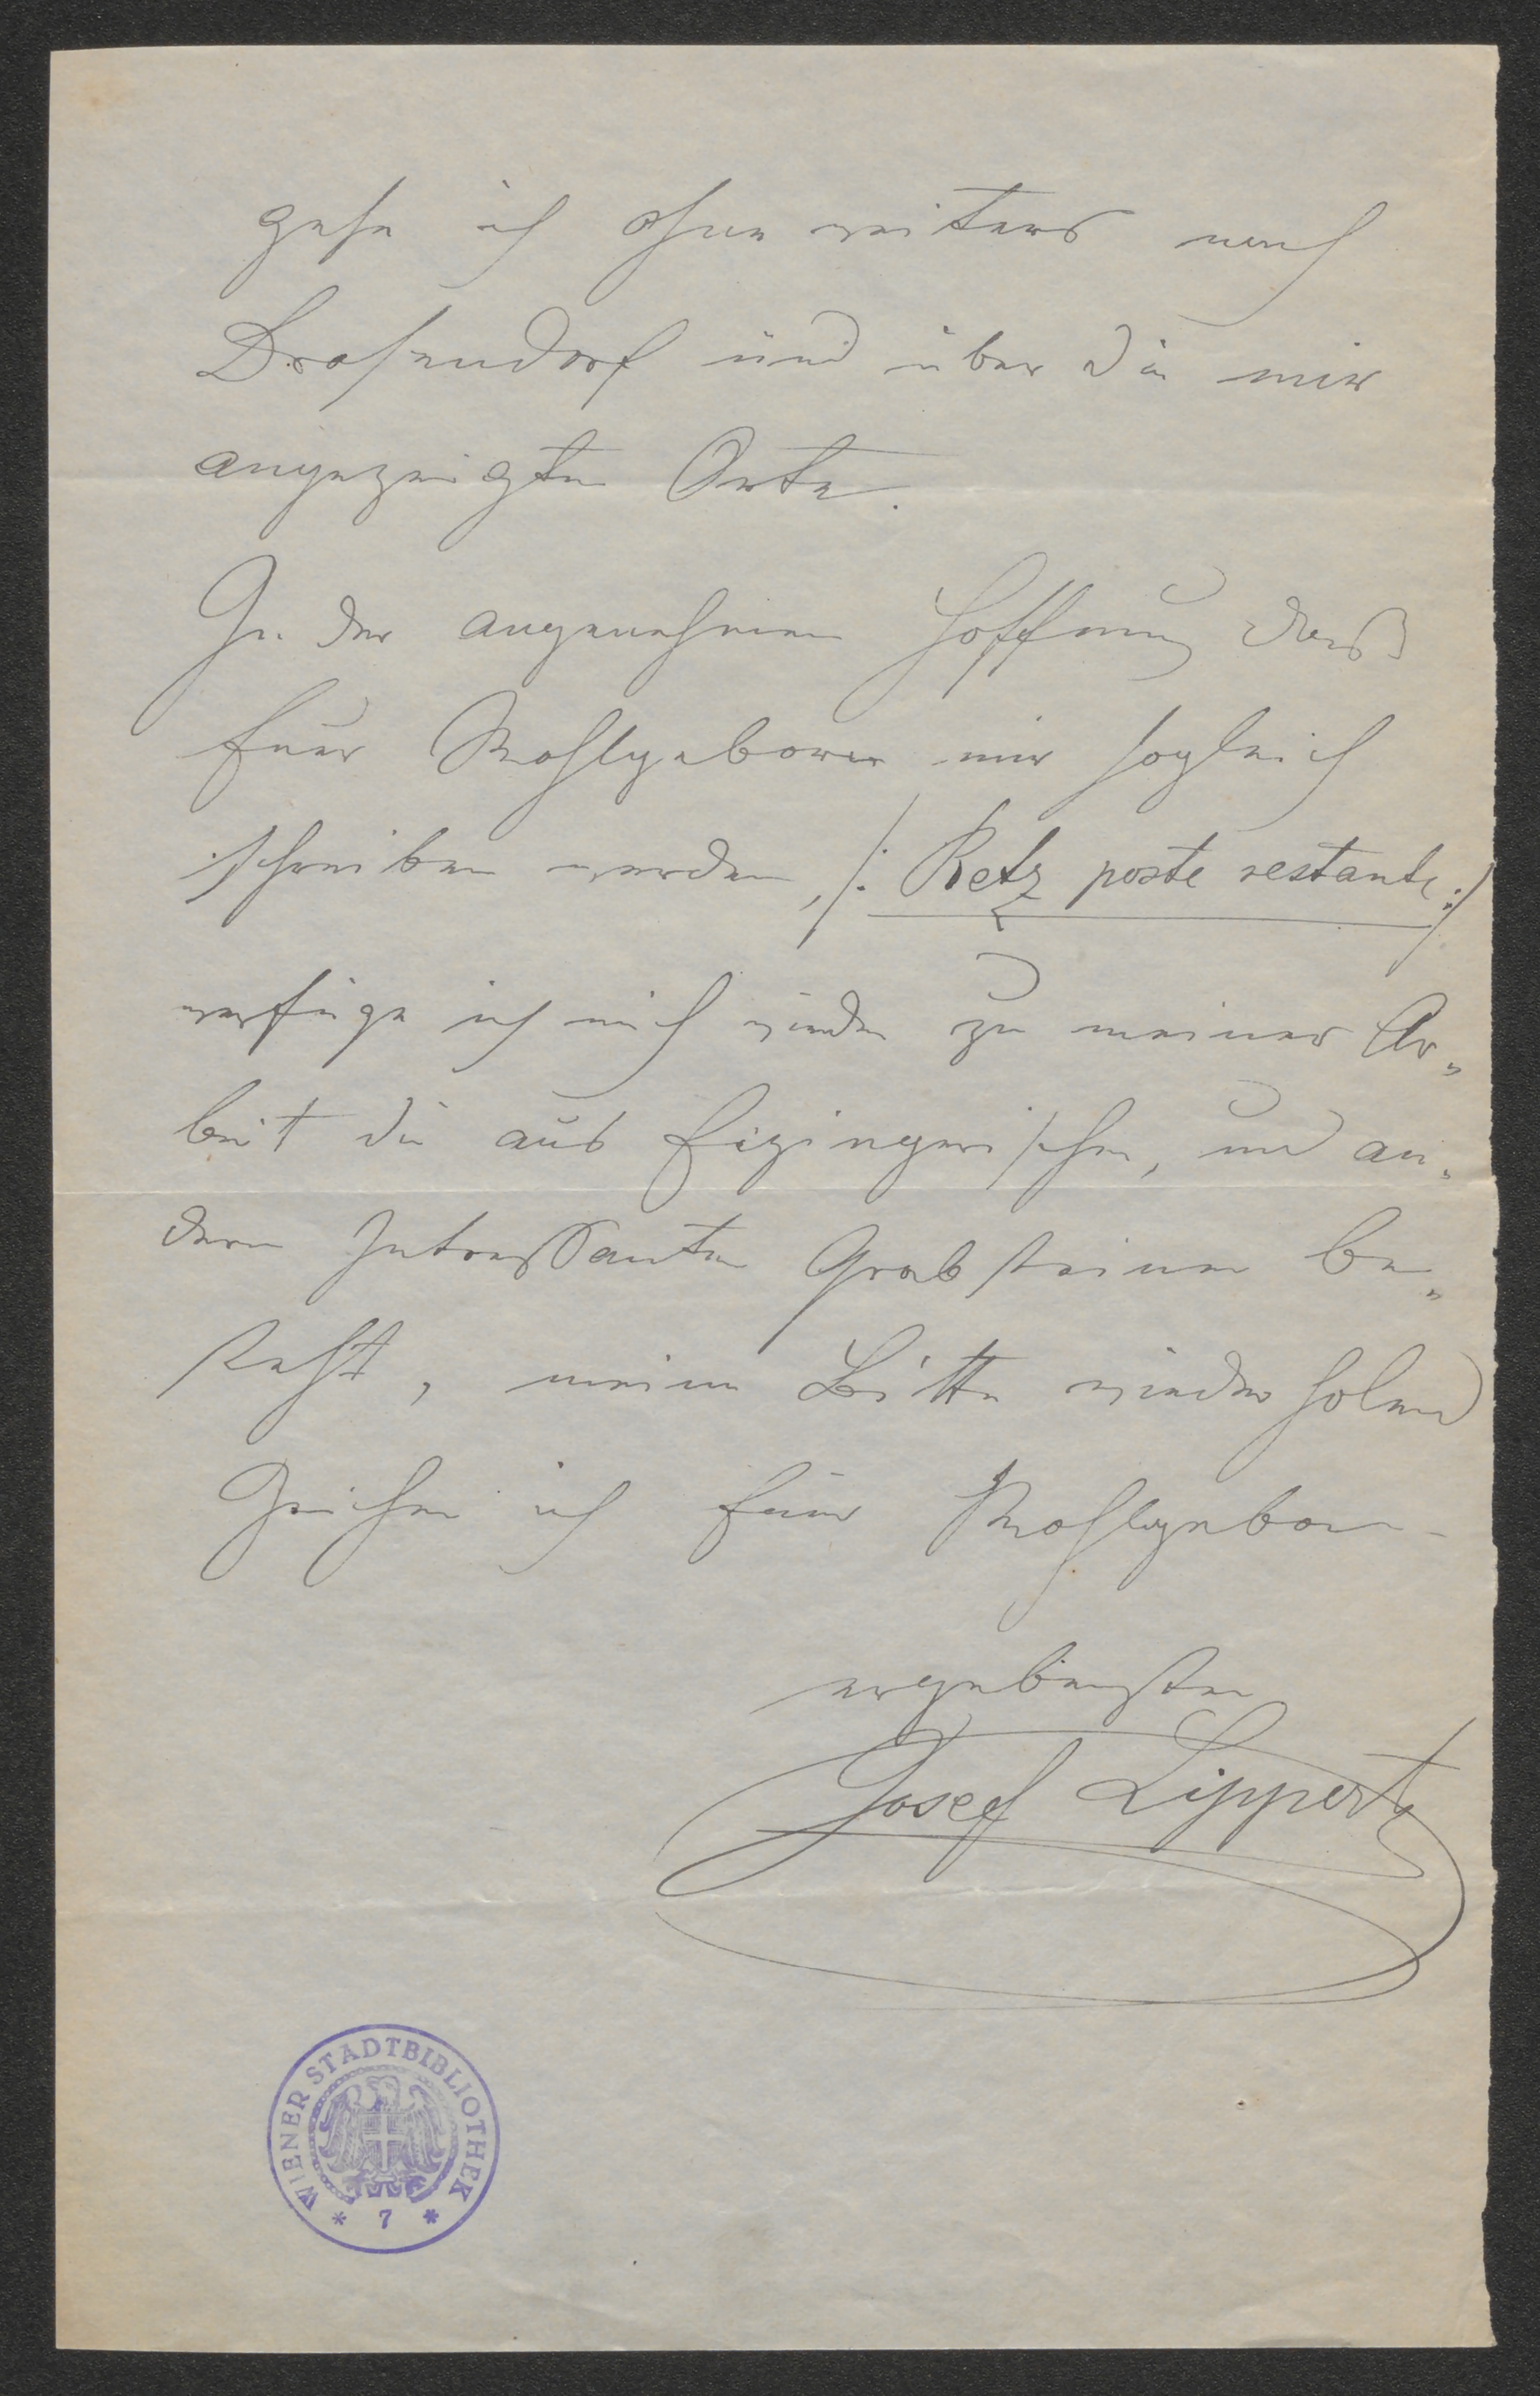 gehe ich ohne weiters nach
Drosendorf und über die mir
angezeigten Orte.
In der angenehmen Hoffnung daß
Euer Wohlgeboren mir sogleich
schreiben werden, /: Retz poste restante :/
verfüge ich mich wieder zu meiner Ar„
beit die aus Eizingerischen, und an„
dern Interessanten Grabsteinen be„
steht, meine Bitte wiederholend
Zeichne ich Euer Wohlgeboren
ergebenster
Josef Lippert
WIENER STADTBIBLIOTHEK
* 7 *